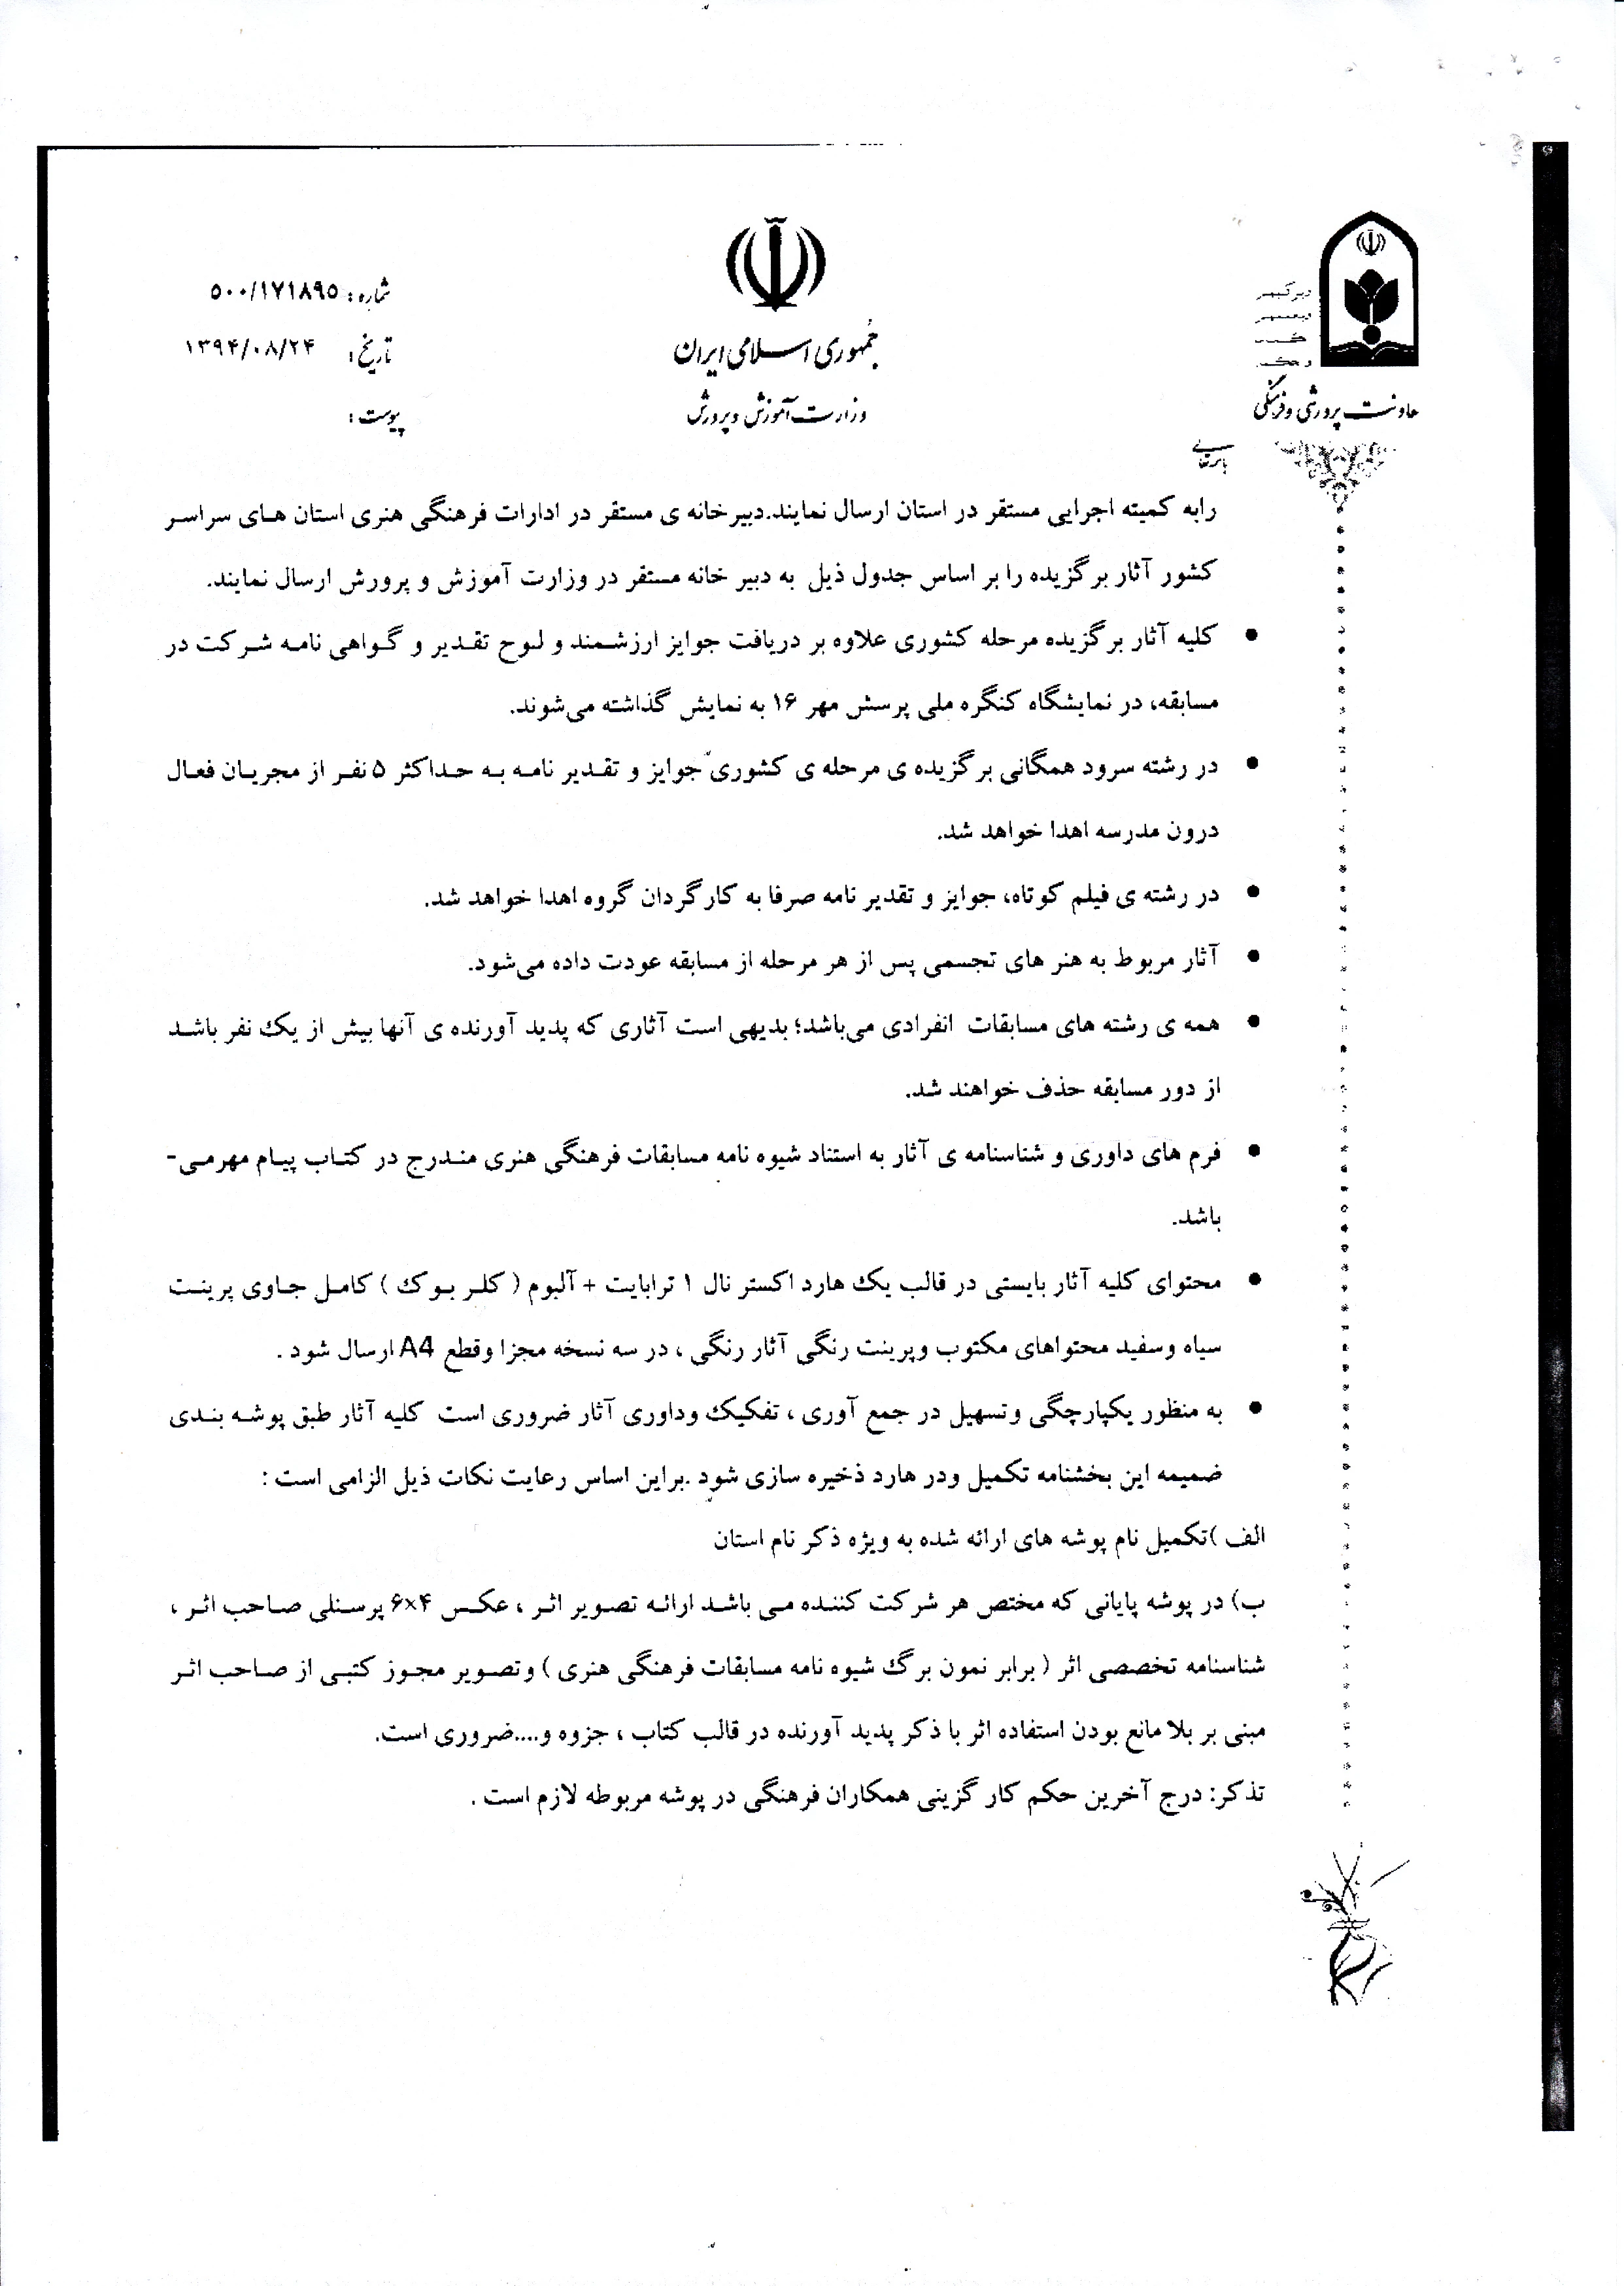 شماره: ۵۰۰/۱۷۱۸۹۵
تاریخ: ۱۳۹۴/۰۸/۲۴
پیوست:
جمهوری اسلامی ایران
وزارت آموزش و پرورش
معاونت پرورشی و فرهنگی
رابه کمیته اجرایی مستقر در استان ارسال نمایند.دبیرخانه ی مستقر در ادارات فرهنگی هنری استان های سراسر
کشور آثار برگزیده را بر اساس جدول ذیل به دبیر خانه مستقر در وزارت آموزش و پرورش ارسال نمایند.
• کلیه آثار برگزیده مرحله کشوری علاوه بر دریافت جوایز ارزشمند و لوح تقدیر و گواهی نامه شرکت در
مسابقه، در نمایشگاه کنگره ملی پرسش مهر ۱۶ به نمایش گذاشته می‌شوند.
• در رشته سرود همگانی برگزیده ی مرحله ی کشوری جوایز و تقدیر نامه به حداکثر ۵ نفر از مجریان فعال
درون مدرسه اهدا خواهد شد.
• در رشته ی فیلم کوتاه، جوایز و تقدیر نامه صرفا به کارگردان گروه اهدا خواهد شد.
• آثار مربوط به هنر های تجسمی پس از هر مرحله از مسابقه عودت داده می‌شود.
• همه ی رشته های مسابقات انفرادی می‌باشد؛ بدیهی است آثاری که پدید آورنده ی آنها بیش از یک نفر باشد
از دور مسابقه حذف خواهند شد.
• فرم های داوری و شناسنامه ی آثار به استناد شیوه نامه مسابقات فرهنگی هنری مندرج در کتاب پیام مهرمی-
باشد.
• محتوای کلیه آثار بایستی در قالب یک هارد اکستر نال ۱ ترابایت + آلبوم ( کلر بوک ) کامل حاوی پرینت
سیاه وسفید محتواهای مکتوب وپرینت رنگی آثار رنگی ، در سه نسخه مجزا وقطع A4 ارسال شود .
• به منظور یکپارچگی وتسهیل در جمع آوری ، تفکیک وداوری آثار ضروری است کلیه آثار طبق پوشه بندی
ضمیمه این بخشنامه تکمیل ودر هارد ذخیره سازی شود .براین اساس رعایت نکات ذیل الزامی است :
الف )تکمیل نام پوشه های ارائه شده به ویژه ذکر نام استان
ب) در پوشه پایانی که مختص هر شرکت کننده می باشد ارائه تصویر اثر ، عکس ۴×۶ پرسنلی صاحب اثر ،
شناسنامه تخصصی اثر ( برابر نمون برگ شیوه نامه مسابقات فرهنگی هنری ) وتصویر مجوز کتبی از صاحب اثر
مبنی بر بلا مانع بودن استفاده اثر با ذکر پدید آورنده در قالب کتاب ، جزوه و....ضروری است.
تذکر: درج آخرین حکم کار گزینی همکاران فرهنگی در پوشه مربوطه لازم است .